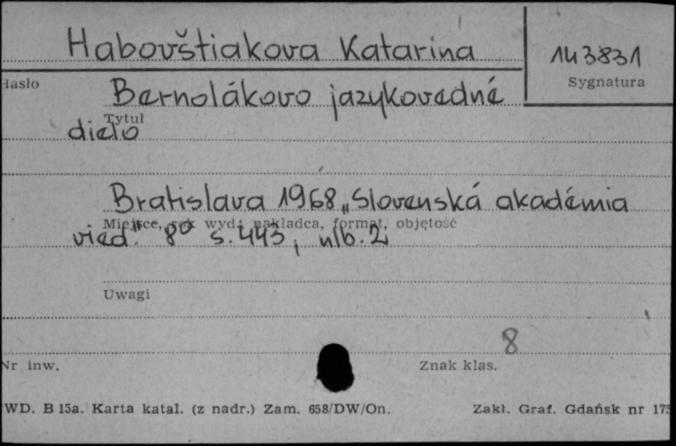 Habovštiakova Katarina
143831
Hasło
Sygnatura
Bernolákovo jazykovedné
Tytuł
dielo
Bratislava 1968 „Slovenská akadémia
Miejsce, rok wyd., nakładca, format, objętość
vied." 8° s. 443, nlb. 2
Uwagi
8
Nr inw.
Znak klas.
WD. B 15a. Karta katal. (z nadr.) Zam. 658/DW/On.
Zakł. Graf. Gdańsk nr 175